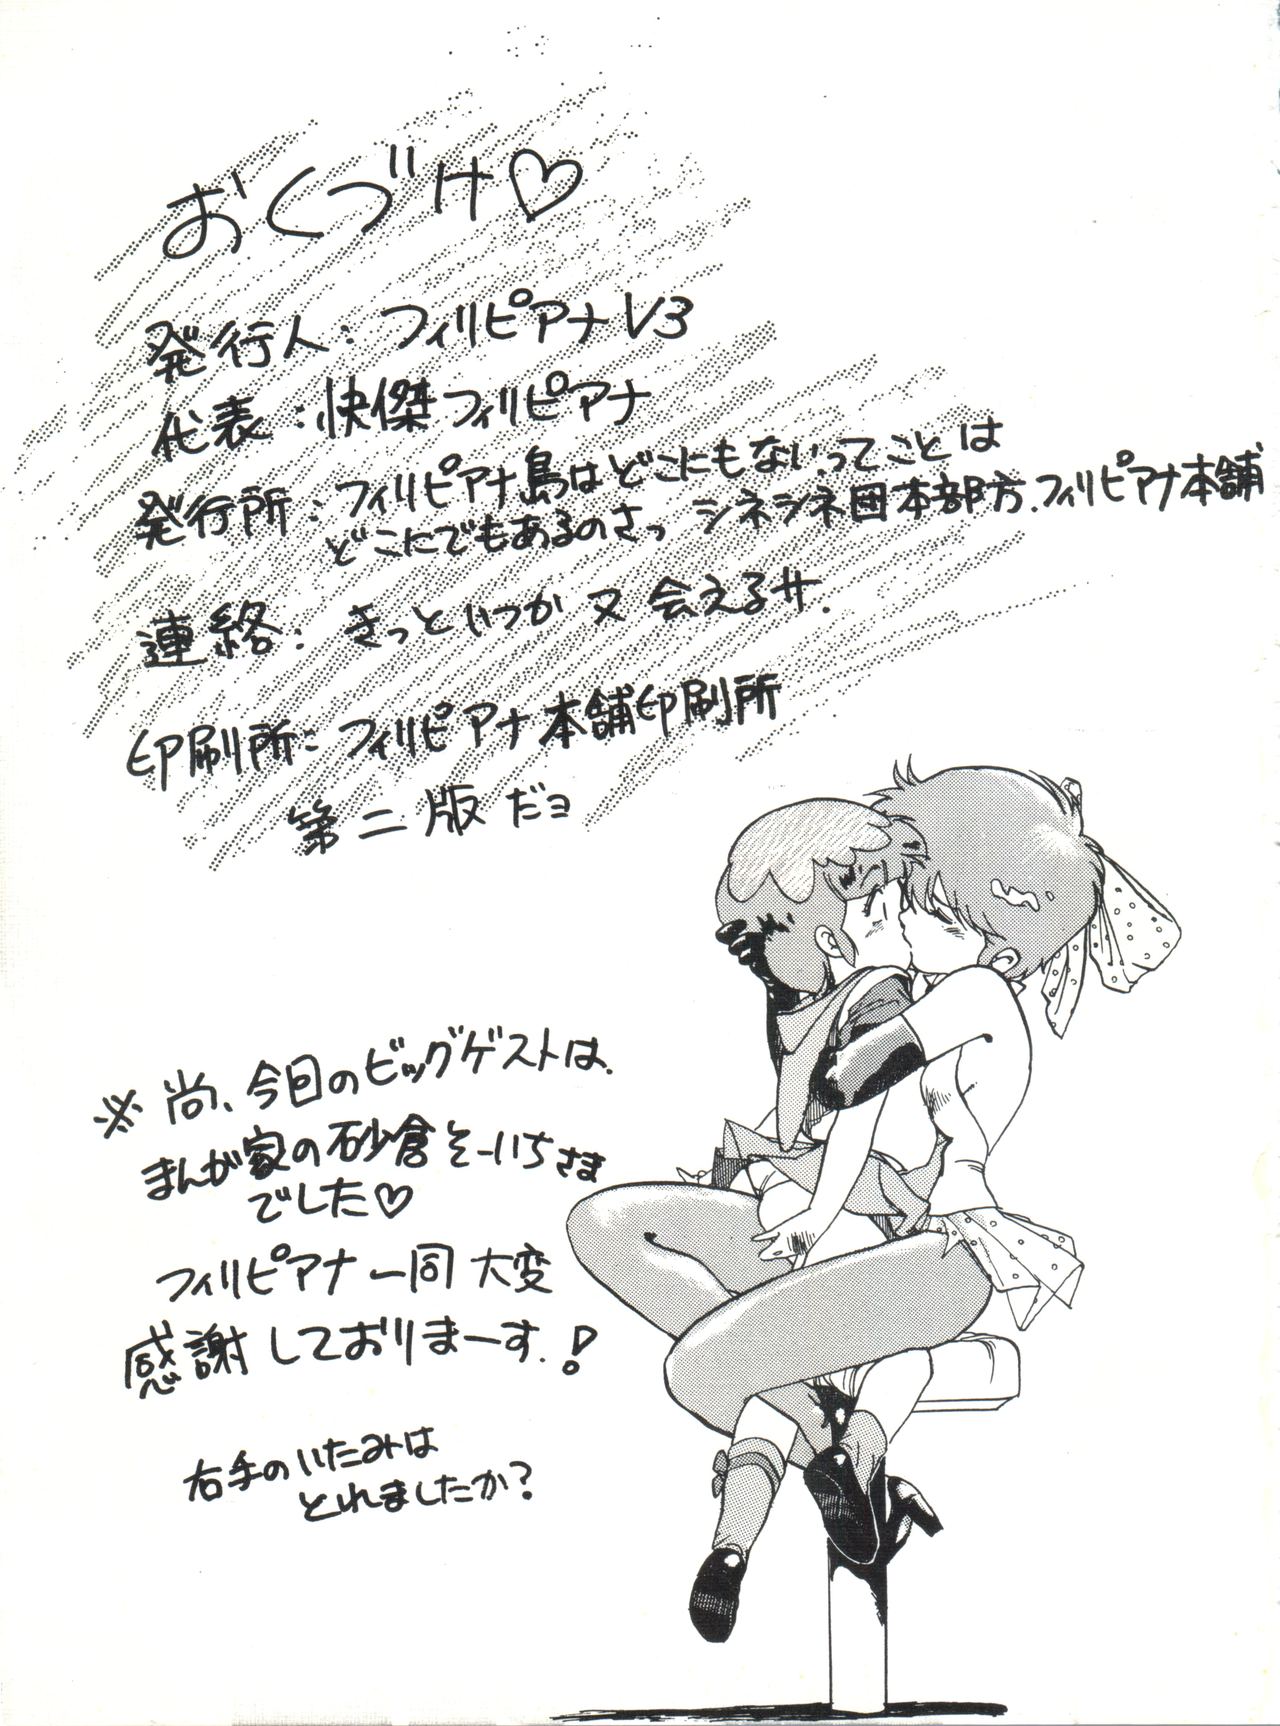 おくづけ♡
発行人：フィリピアナV3
代表：快傑フィリピアナ
発行所：フィリピアナ島はどこにもないってことは
どこにでもあるのさっ シネシネ団本部方.フィリピアナ本舗
連絡：きっといつか又会えるサ.
印刷所：フィリピアナ本舗印刷所
第二版だヨ
※尚、今回のビッグゲストは.
まんが家の砂倉そーいちさま
でした♡
フィリピアナ一同大変
感謝しておりまーす.!
右手のいたみは
とれましたか?